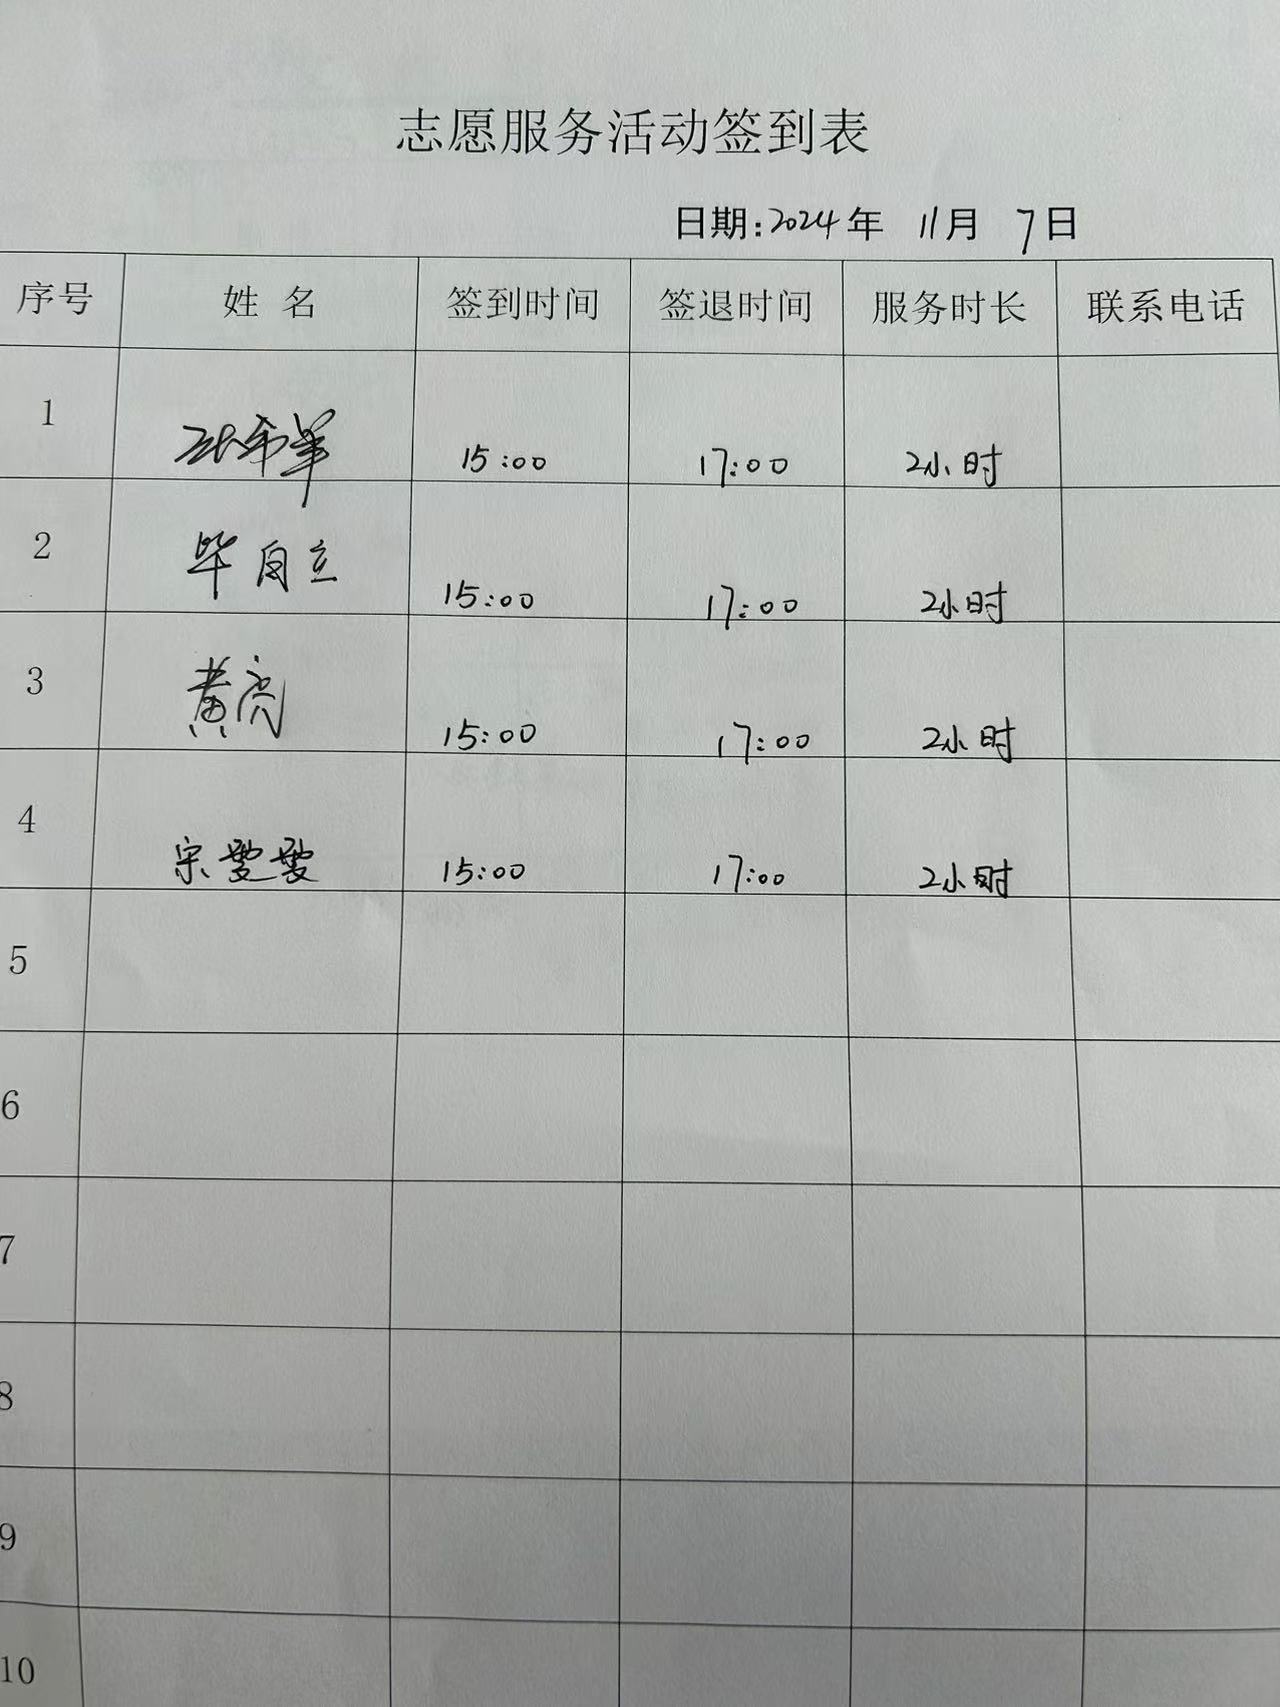 志愿服务活动签到表
日期:2024年 11月 7日
序号 姓 名 签到时间 签退时间 服务时长 联系电话
1 15:00 17:00 2小时
2 毕自立 15:00 17:00 2小时
3 黄亮 15:00 17:00 2小时
4 宋雯雯 15:00 17:00 2小时
5
6
7
8
9
10